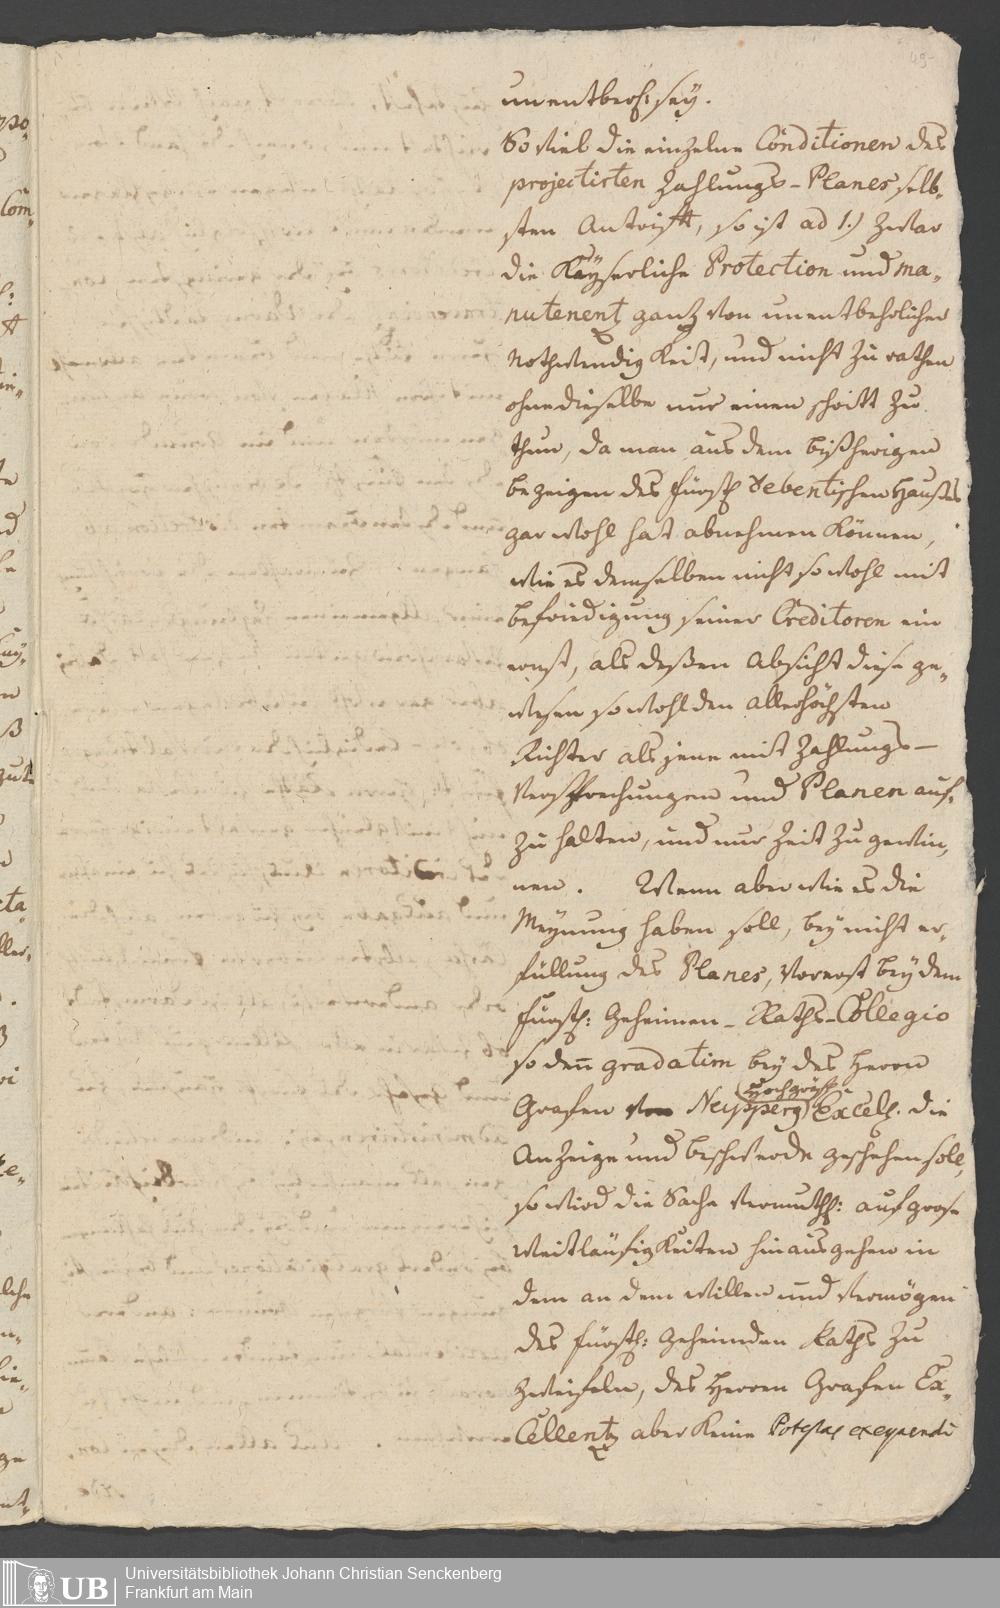 49
unentberl. sey.
So viel die einzelne Conditionen des
projectirten Zahlungs-Planes selb-
sten Antrifft, so ist ad 1.) zwar
die Kayserliche Protection und ma-
nutenentz ganz von unentbehrlicher
Nothwendigkeit, und nicht zu rathen
ohne dieselbe nur einen schritt zu
thun, da man aus dem bißherigen
bezeigen des fürstl. debentischen Haußes
gar wohl hat abnehmen können,
wie es demselben nicht so wohl mit
befriedigung seiner Creditoren ein
ernst, als deßen Absicht diese ge-
wesen so wohl den allerhöchsten
Richter als jene mit Zahlungs-
Versprechungen und Planen auf-
zu halten, und nur Zeit zu gewin-
nen. Wenn aber wie es die
Meynung haben soll, bey nicht er-
füllung des Planes, vorerst bey dem
fürstl: Geheimen-Raths-Collegio
so den̄ gradatim bey des Herrn
Grafen von Neipperg (Hochgräfl.) Excell. die
Anzeige und beschwerde geschehen soll,
so wird die Sache vermuthl: auf grose
Weitläufigkeiten hinausgehen in
dem an dem willen und vermögen
des fürstl: Geheimden Raths zu
zweifeln, des Herren Grafen Ex-
Cellentz aber keine Potestas exequendi
Universitätsbibliothek Johann Christian Senckenberg
UB
Frankfurt am Main